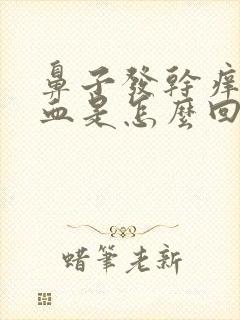 鼻子發幹癢
血是怎麼回
蜡筆老新